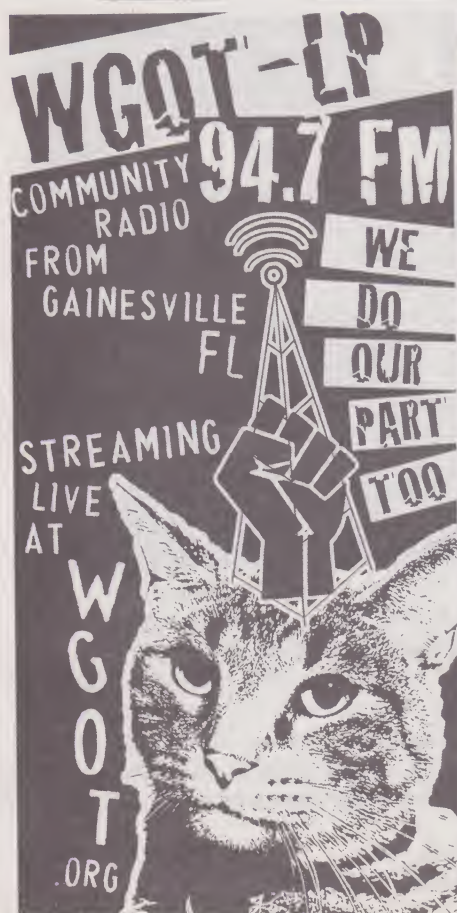 WGOT-LP
94.7 FM
COMMUNITY
RADIO
FROM
GAINESVILLE
FL
WE
DO
OUR
PART
TOO
STREAMING
LIVE
AT
WGOT
.ORG